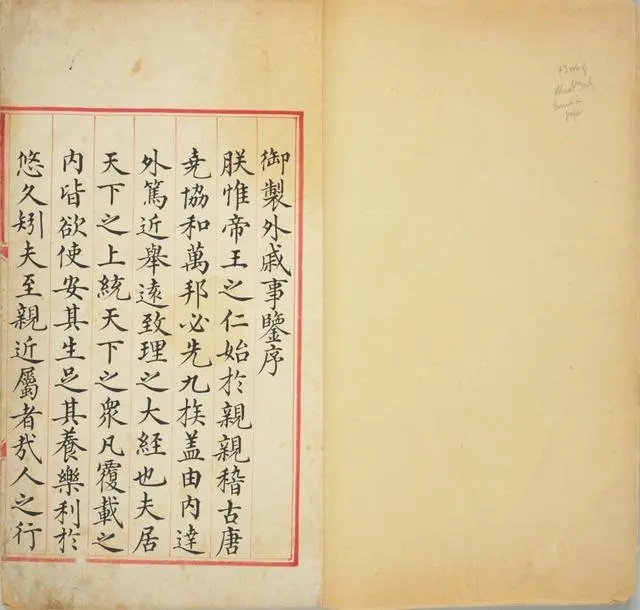 御製外戚事鑒序
朕惟帝王之仁始於親親稽古唐
堯協和萬邦必先九族盖由內達
外篤近舉遠致理之大經也夫居
天下之上統天下之衆凡覆載之
內皆欲使安其生足其養樂利於
悠久矧夫至親近屬者哉人之行